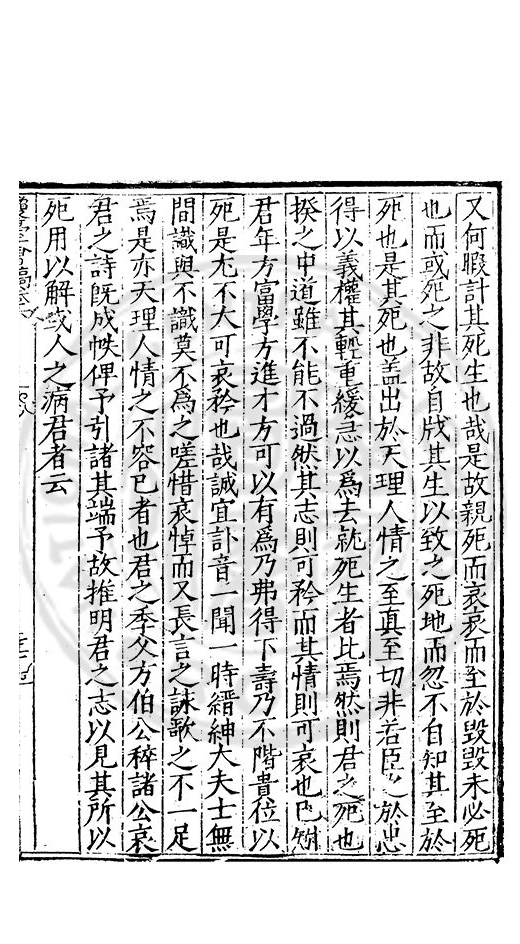 又何暇計其死生也哉是故親死而哀哀而至於毀毀未必死
也而或死之非故自戕其生以致之死地而忽不自知其至於
死也是其死也盖出於天理人情之至真至切非若臣之於忠
得以義權其輕重緩急以爲去就死生者比焉然則君之死也
揆之中道雖不能不過然其志則可矜而其情則可哀也已矧
君年方富學方進才方可以有爲乃弗得下壽乃不階貴位以
死是尤不大可哀矜也哉誠宜訃音一聞一時縉紳大夫士無
間識與不識莫不爲之嗟惜哀悼而又長言之詠歌之不一足
焉是亦天理人情之不容已者也君之季父方伯公稡諸公哀
君之詩旣成帙俾予引諸其端予故推明君之志以見其所以
死用以解或人之病君者云